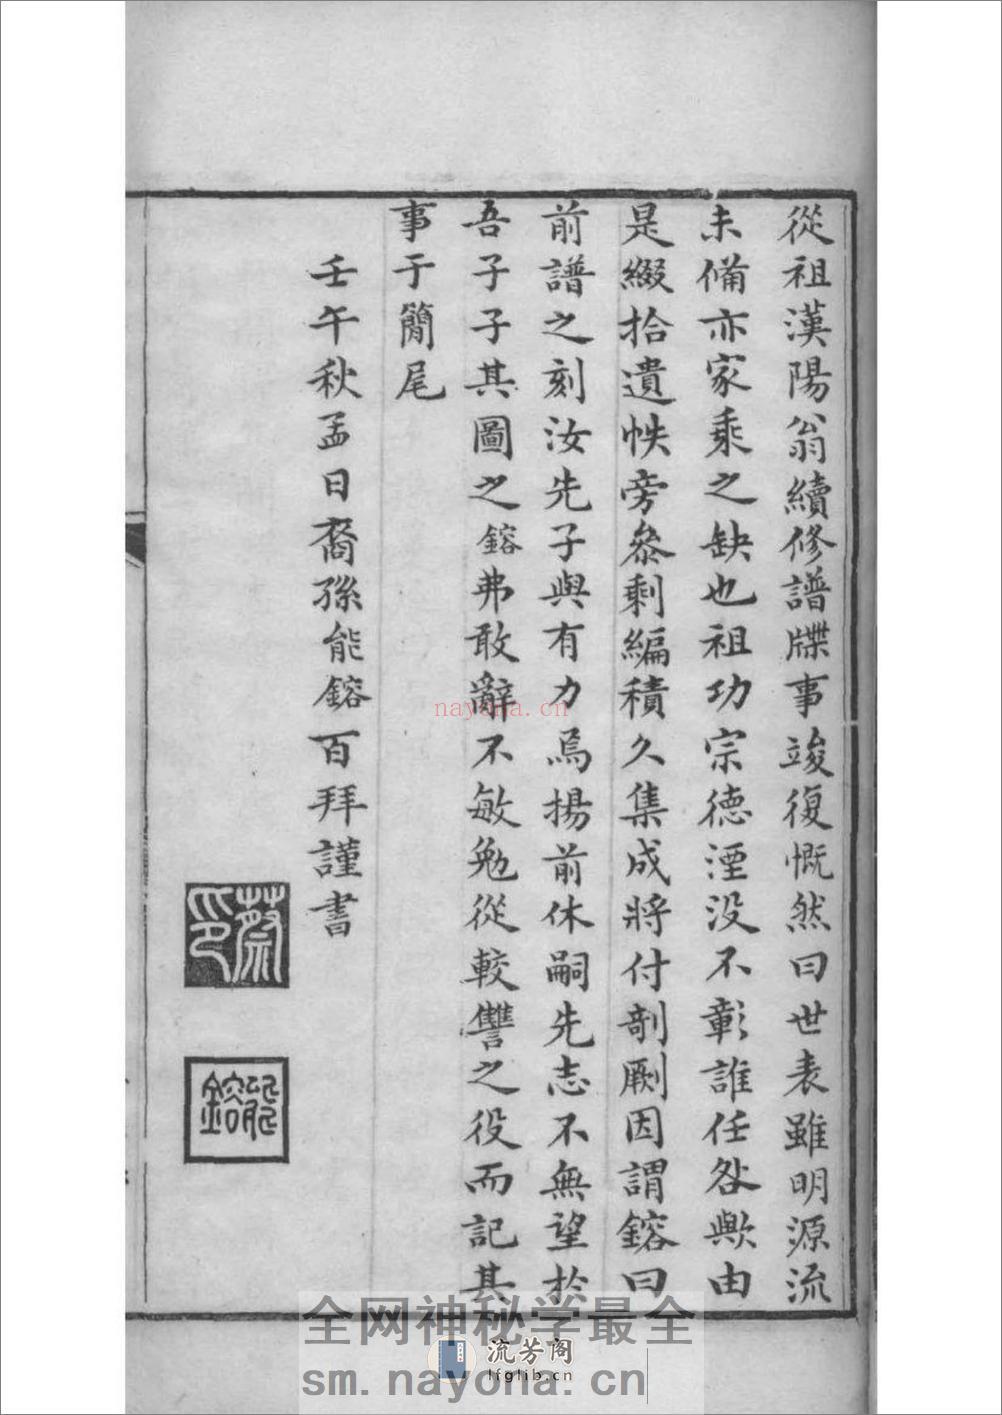 從祖漢陽翁續修譜牒事竣復慨然曰世表雖明源流
未備亦家乘之缺也祖功宗德湮没不彰誰任咎歟由
是綴拾遺帙旁叅剩編積久集成將付剞劂因謂鎔曰
前譜之刻汝先子與有力焉揚前休嗣先志不無望於
吾子子其圖之鎔弗敢辭不敏勉從較讐之役而記其
事于簡尾
壬午秋孟日裔孫能鎔百拜謹書
蔡印
能鎔
nayona.cn
全网神秘学最全
流芳阁
lfglib.cn
sm.nayona.cn